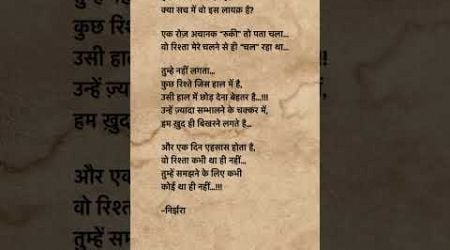 क्या सच में वो इस लायक़ है?
एक रोज़ अचानक "रुकी" तो पता चला...
वो रिश्ता मेरे चलने से ही "चल" रहा था...
तुम्हे नहीं लगता...
कुछ रिश्ते जिस हाल में है,
उसी हाल में छोड़ देना बेहतर है...!!!
उन्हें ज़्यादा सम्भालने के चक्कर में,
हम ख़ुद ही बिखरने लगते है...
और एक दिन एहसास होता है,
वो रिश्ता कभी था ही नहीं...
तुम्हें समझने के लिए कभी
कोई था ही नहीं...!!!
-निर्झरा